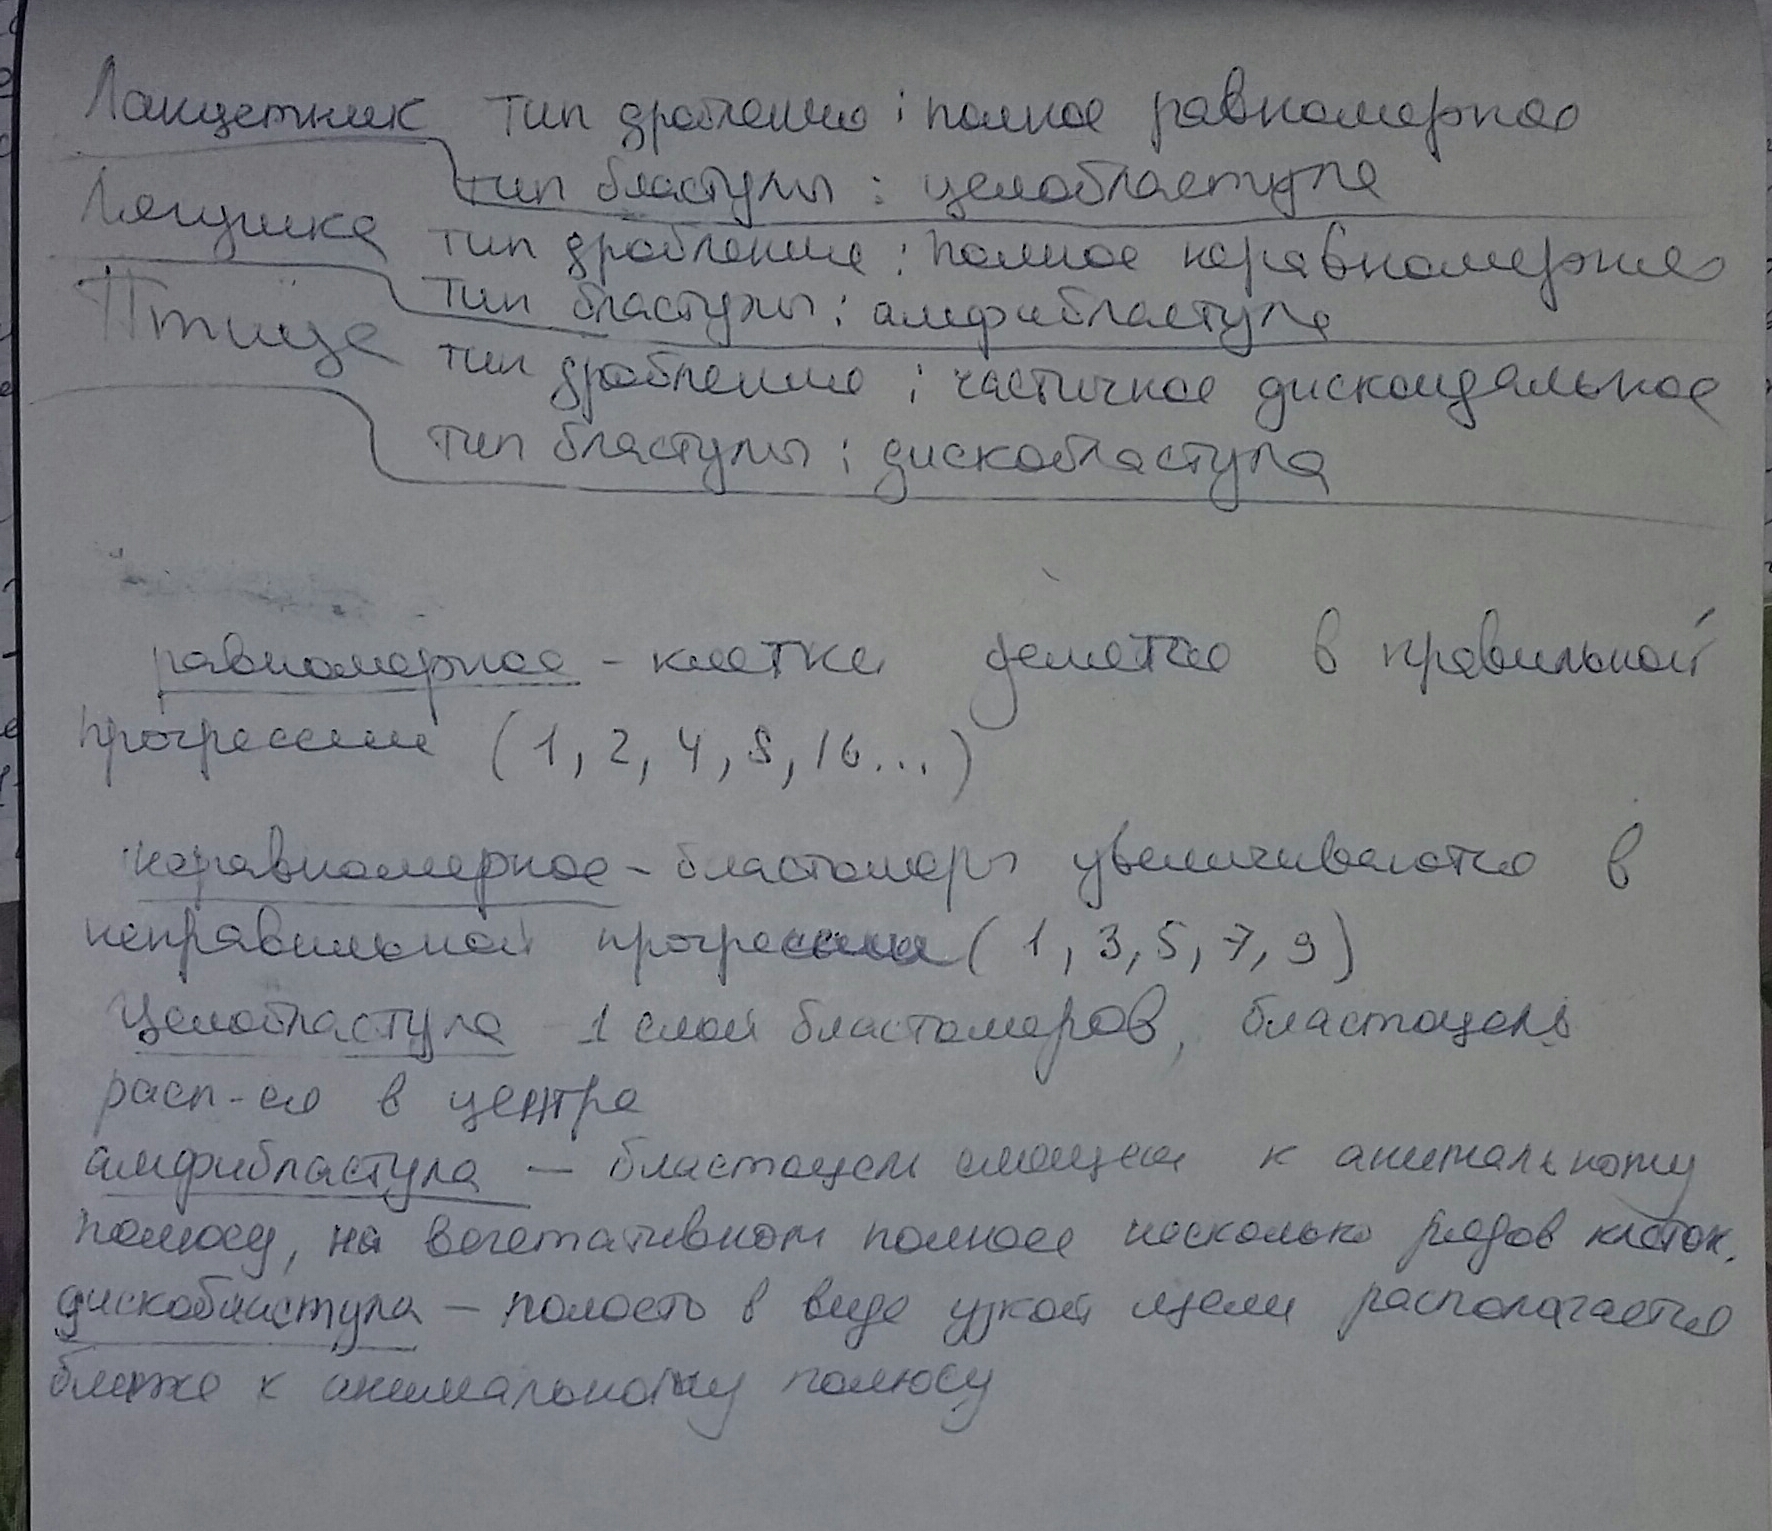 Ланцетник тип дробления: полное равномерное
тип бластулы: целобластула
Лягушка тип дробления: полное неравномерное
тип бластулы: амфибластула
Птица тип дробления: частичное дискоидальное
тип бластулы: дискобластула
равномерное - клетки делятся в правильной
прогрессии (1, 2, 4, 8, 16...)
неравномерное - бластомеры увеличиваются в
неправильной прогрессии (1, 3, 5, 7, 9)
Целобластула 1 слой бластомеров, бластоцель
расп-ся в центре
амфибластула — бластоцель смещен к анимальному
полюсу, на вегетативном полюсе несколько рядов клеток.
дискобластула — полость в виде узкой щели располагается
ближе к анимальному полюсу